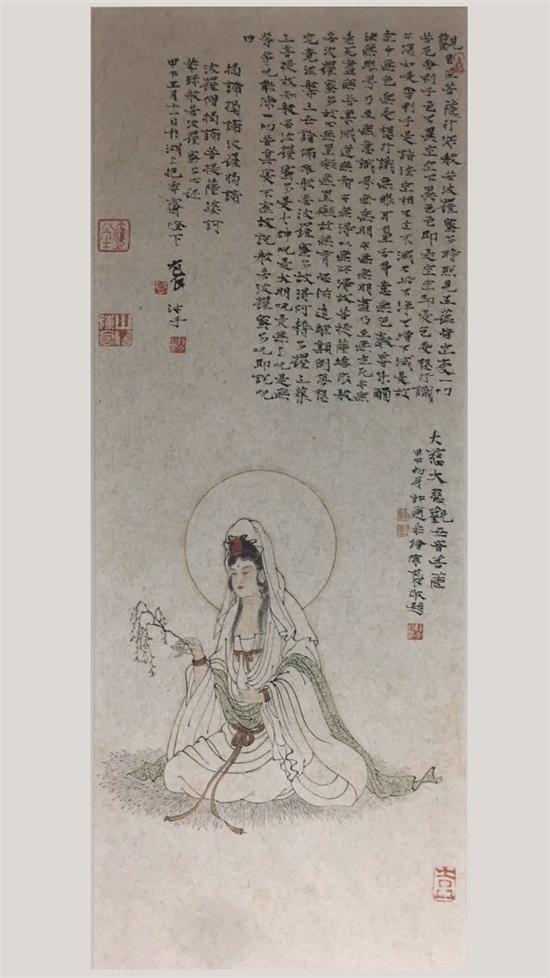 觀自在菩薩行深般若波羅蜜多時照見五蘊皆空度一切
苦厄舍利子色不異空空不異色色即是空空即是色受想行識
亦復如是舍利子是諸法空相不生不滅不垢不淨不增不減是故
空中無色無受想行識無眼耳鼻舌身意無色聲香味觸
法無眼界乃至無意識界無無明亦無無明盡乃至無老死亦無
老死盡無苦集滅道無智亦無得以無所得故菩提薩埵依般
若波羅蜜多故心無罣礙無罣礙故無有恐怖遠離顛倒夢想
究竟涅槃三世諸佛依般若波羅蜜多故得阿耨多羅三藐
三菩提故知般若波羅蜜多是大神咒是大明咒是無上咒是無
等等咒能除一切苦真實不虛故說般若波羅蜜多咒即說咒
曰
揭諦揭諦波羅揭諦
波羅僧揭諦菩提薩婆訶
般若波羅蜜多心經
甲午五月十一日於齋燈下
大慈大悲觀世音菩薩
甲午初夏敬題